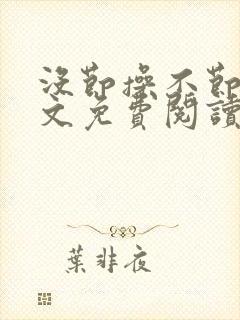 沒節操不節
文免費閱讀
葉非夜